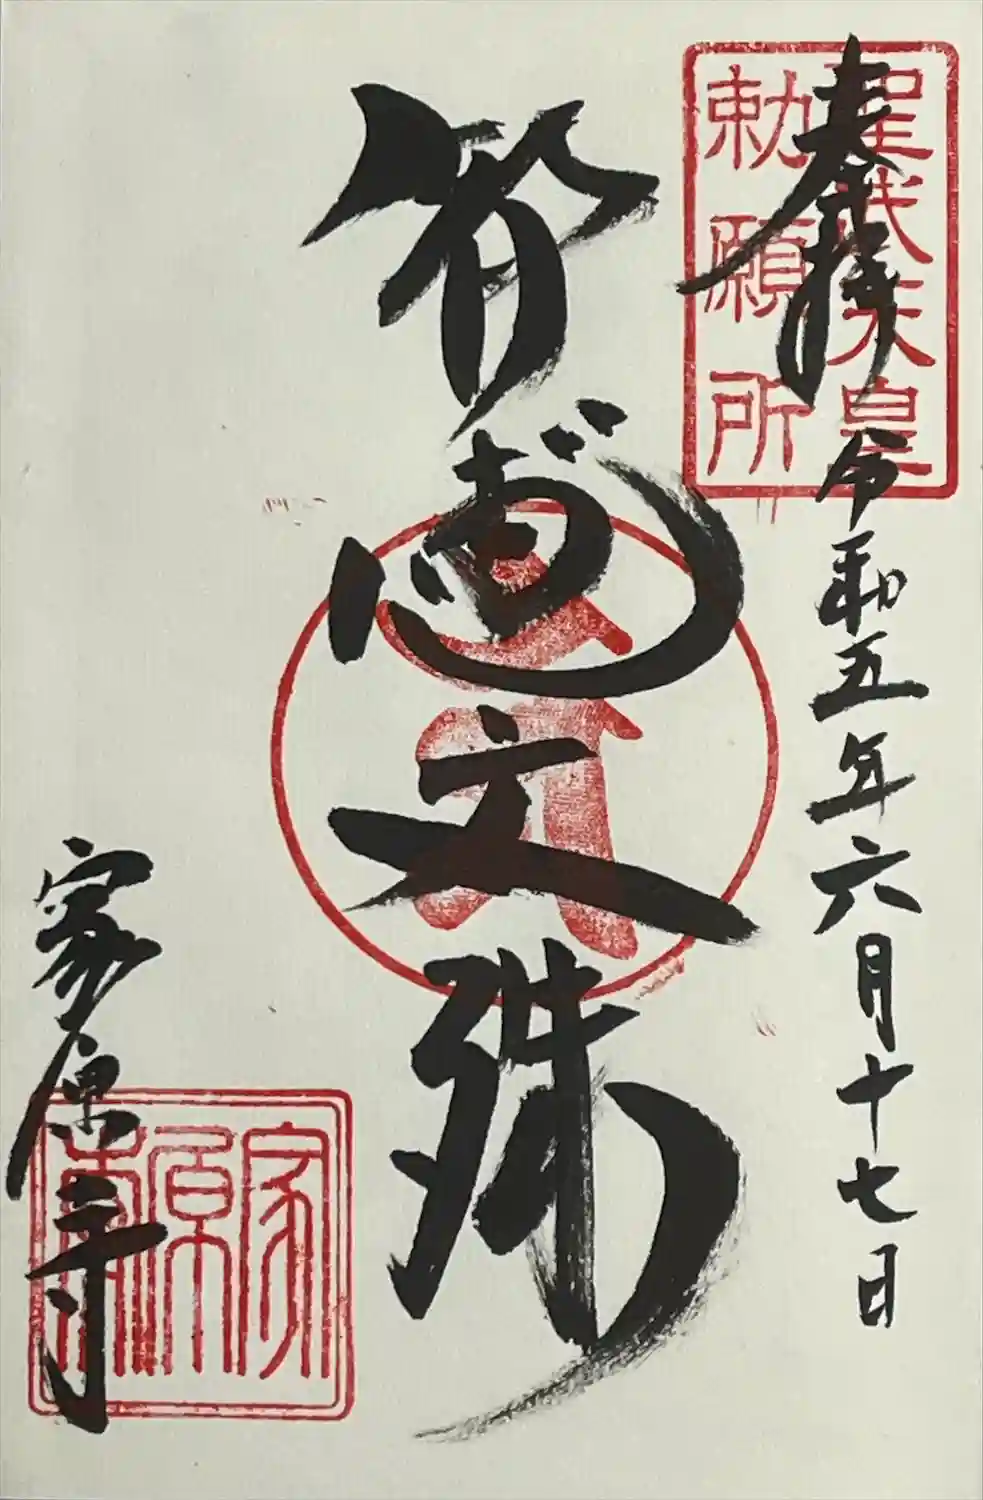 奉拝
令和五年六月十七日
聖武天皇
勅願所
智恵文殊
家原寺
家原寺